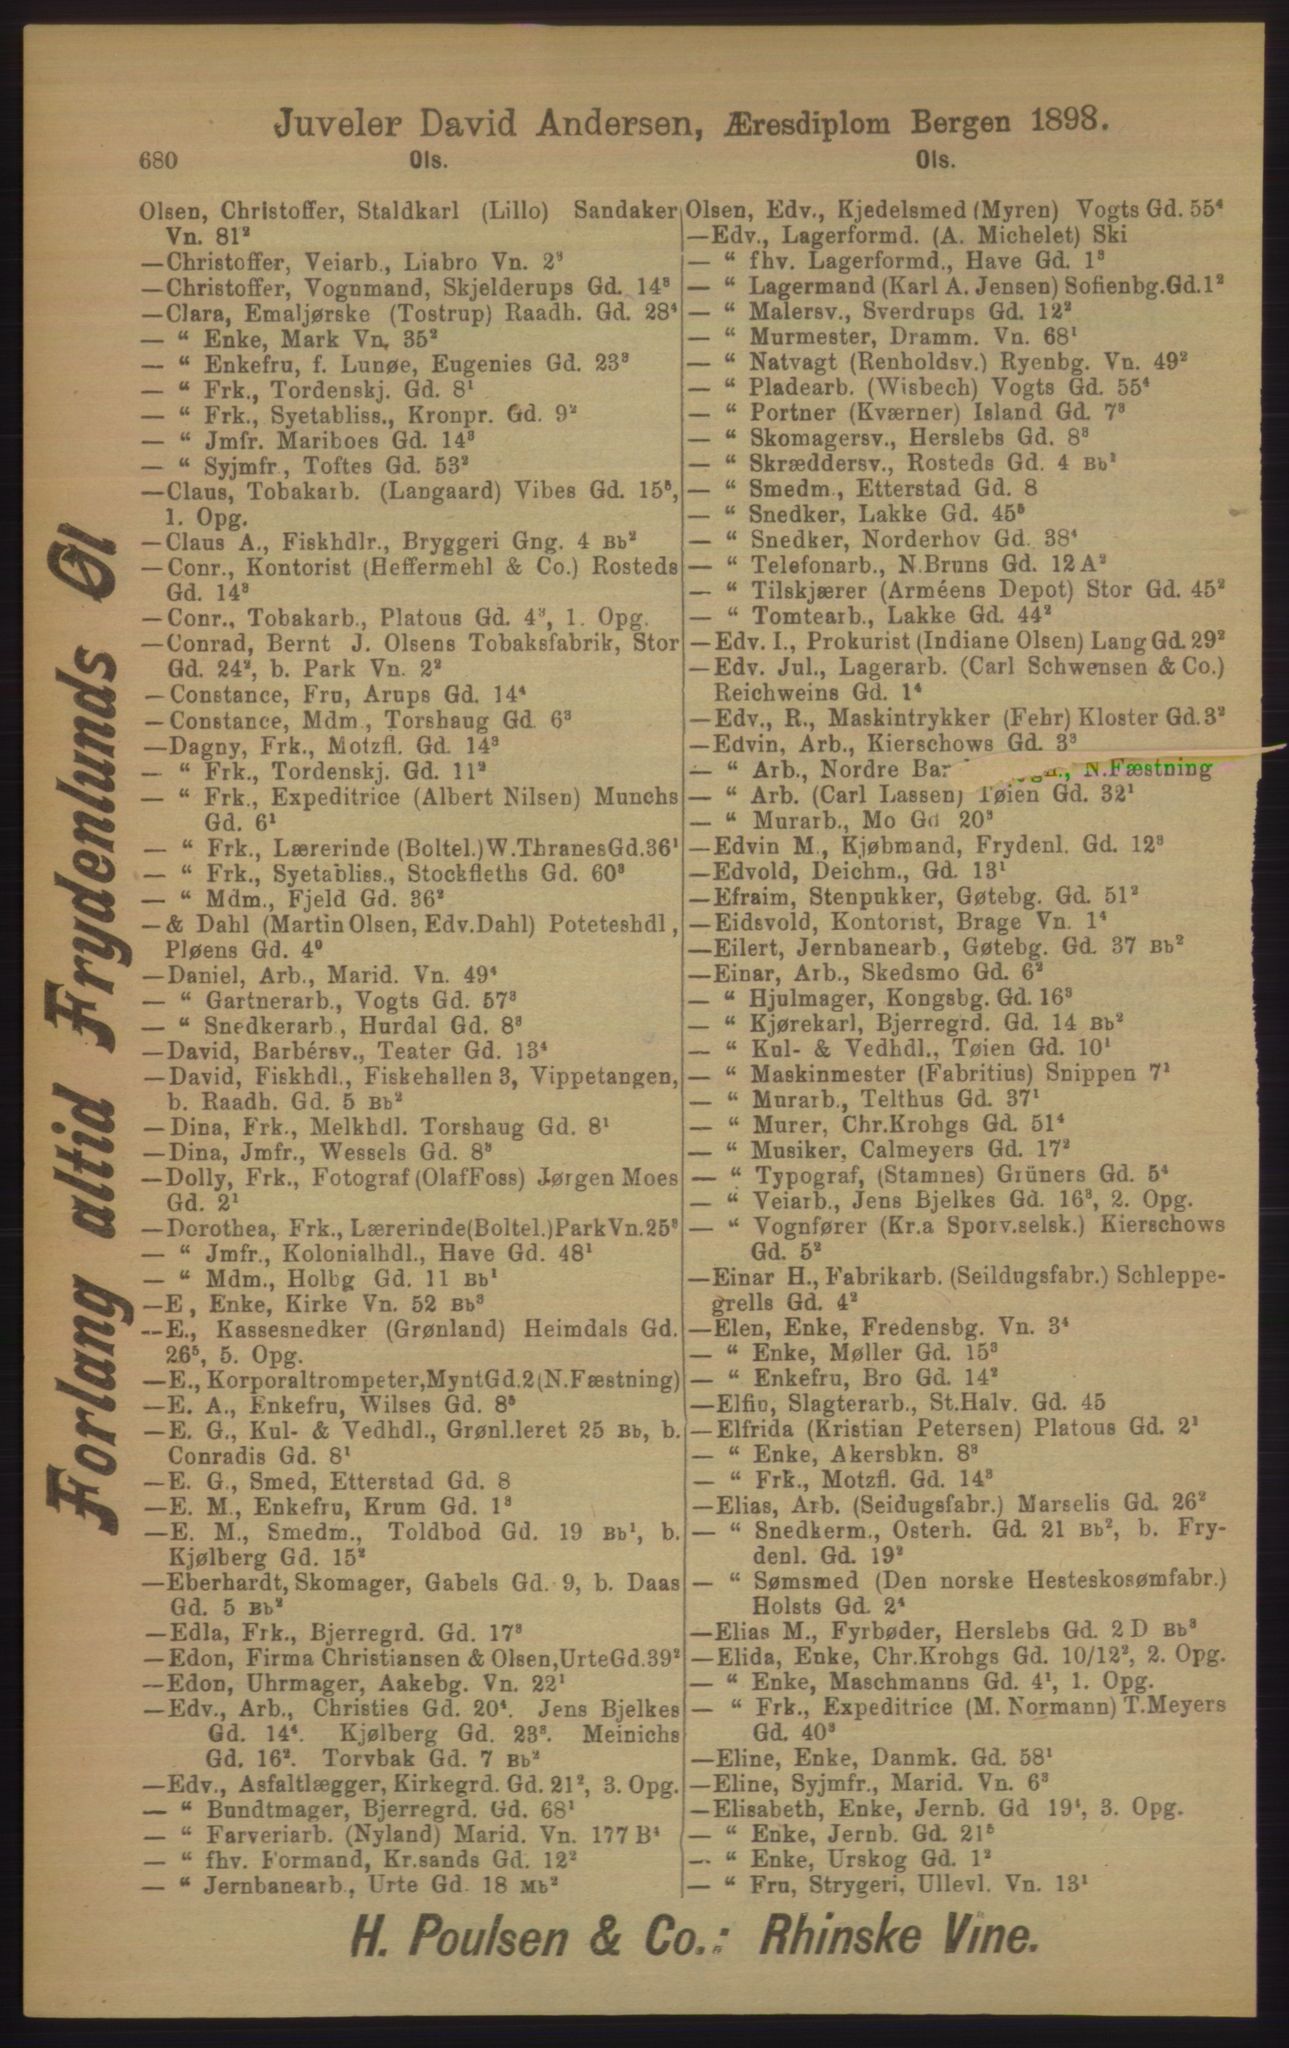 Juveler David Andersen, Æresdiplom Bergen 1898.
680 Ols. Ols.
Olsen, Christoffer, Staldkarl (Lillo) Sandaker
Vn. 81²
—Christoffer, Veiarb., Liabro Vn. 2³
—Christoffer, Vognmand, Skjelderups Gd. 14³
—Clara, Emaljørske (Tostrup) Raadh. Gd. 28⁴
— “ Enke, Mark Vn. 35²
— “ Enkefru, f. Lunøe, Eugenies Gd. 23³
— “ Frk., Tordenskj. Gd. 8¹
— “ Frk., Syetabliss., Kronpr. Gd. 9²
— “ Jmfr. Mariboes Gd. 14³
— “ Syjmfr., Toftes Gd. 53²
—Claus, Tobakarb. (Langaard) Vibes Gd. 15⁵,
1. Opg.
—Claus A., Fiskhdlr., Bryggeri Gng. 4 Bb²
—Conr., Kontorist (Heffermehl & Co.) Rosteds
Gd. 14³
—Conr., Tobakarb., Platous Gd. 4³, 1. Opg.
—Conrad, Bernt J. Olsens Tobaksfabrik, Stor
Gd. 24², b. Park Vn. 2²
—Constance, Fru, Arups Gd. 14⁴
—Constance, Mdm., Torshaug Gd. 6³
—Dagny, Frk., Motzfl. Gd. 14³
— “ Frk., Tordenskj. Gd. 11²
— “ Frk., Expeditrice (Albert Nilsen) Munchs
Gd. 6¹
— “ Frk., Lærerinde (Boltel.) W.ThranesGd.36¹
— “ Frk., Syetabliss., Stockfleths Gd. 60³
— “ Mdm., Fjeld Gd. 36²
—& Dahl (Martin Olsen, Edv. Dahl) Poteteshdl,
Pløens Gd. 4⁰
—Daniel, Arb., Marid. Vn. 49⁴
— “ Gartnerarb., Vogts Gd. 57³
— “ Snedkerarb., Hurdal Gd. 8³
—David, Barbérsv., Teater Gd. 13⁴
—David, Fiskhdl., Fiskehallen 3, Vippetangen,
b. Raadh. Gd. 5 Bb²
—Dina, Frk., Melkhdl. Torshaug Gd. 8¹
—Dina, Jmfr., Wessels Gd. 8³
—Dolly, Frk., Fotograf (Olaf Foss) Jørgen Moes
Gd. 2¹
—Dorothea, Frk., Lærerinde (Boltel.) Park Vn. 25³
— “ Jmfr., Kolonialhdl., Have Gd. 48¹
— “ Mdm., Holbg Gd. 11 Bb¹
—E, Enke, Kirke Vn. 52 Bb³
—E., Kassesnedker (Grønland) Heimdals Gd.
26⁵, 5. Opg.
—E., Korporaltrompeter, Mynt Gd. 2 (N. Fæstning)
—E. A., Enkefru, Wilses Gd. 8⁵
—E. G., Kul- & Vedhdl., Grønl.leret 25 Bb, b.
Conradis Gd. 8¹
—E. G., Smed, Etterstad Gd. 8
—E. M., Enkefru, Krum Gd. 1³
—E. M., Smedm., Toldbod Gd. 19 Bb¹, b.
Kjølberg Gd. 15²
—Eberhardt, Skomager, Gabels Gd. 9, b. Daas
Gd. 5 Bb²
—Edla, Frk., Bjerregrd. Gd. 17³
—Edon, Firma Christiansen & Olsen, Urte Gd. 39²
—Edon, Uhrmager, Aakebg. Vn. 22¹
—Edv., Arb., Christies Gd. 20⁴. Jens Bjelkes
Gd. 14⁴. Kjølberg Gd. 23³. Meinichs
Gd. 16². Torvbak Gd. 7 Bb²
—Edv., Asfaltlægger, Kirkegrd. Gd. 21², 3. Opg.
— “ Bundtmager, Bjerregrd. Gd. 68¹
— “ Farveriarb. (Nyland) Marid. Vn. 177 B⁴
— “ fhv. Formand, Kr.sands Gd. 12²
— “ Jernbanearb., Urte Gd. 18 Mb²
Olsen, Edv., Kjedelsmed (Myren) Vogts Gd. 55⁴
—Edv., Lagerformd. (A. Michelet) Ski
— “ fhv. Lagerformd., Have Gd. 1³
— “ Lagermand (Karl A. Jensen) Sofienbg.Gd.1²
— “ Malersv., Sverdrups Gd. 12²
— “ Murmester, Dramm. Vn. 68¹
— “ Natvagt (Renholdsv.) Ryenbg. Vn. 49²
— “ Pladearb. (Wisbech) Vogts Gd. 55⁴
— “ Portner (Kværner) Island Gd. 7³
— “ Skomagersv., Herslebs Gd. 8³
— “ Skræddersv., Rosteds Gd. 4 Bb¹
— “ Smedm., Etterstad Gd. 8
— “ Snedker, Lakke Gd. 45⁵
— “ Snedker, Norderhov Gd. 38⁴
— “ Telefonarb., N.Bruns Gd. 12 A²
— “ Tilskjærer (Arméens Depot) Stor Gd. 45²
— “ Tomtearb., Lakke Gd. 44²
—Edv. I., Prokurist (Indiane Olsen) Lang Gd. 29²
—Edv. Jul., Lagerarb. (Carl Schwensen & Co.)
Reichweins Gd. 1⁴
—Edv., R., Maskintrykker (Fehr) Kloster Gd. 3²
—Edvin, Arb., Kierschows Gd. 3³
— “ Arb., Nordre N.Fæstning
— “ Arb. (Carl Lassen) Tøien Gd. 32¹
— “ Murarb., Mo Gd 20³
—Edvin M., Kjøbmand, Frydenl. Gd. 12³
—Edvold, Deichm., Gd. 13¹
—Efraim, Stenpukker, Gøtebg. Gd. 51²
—Eidsvold, Kontorist, Brage Vn. 1⁴
—Eilert, Jernbanearb., Gøtebg. Gd. 37 Bb²
—Einar, Arb., Skedsmo Gd. 6²
— “ Hjulmager, Kongsbg. Gd. 16³
— “ Kjørekarl, Bjerregrd. Gd. 14 Bb²
— “ Kul- & Vedhdl., Tøien Gd. 10¹
— “ Maskinmester (Fabritius) Snippen 7¹
— “ Murarb., Telthus Gd. 37¹
— “ Murer, Chr.Krohgs Gd. 51⁴
— “ Musiker, Calmeyers Gd. 17²
— “ Typograf, (Stamnes) Grüners Gd. 5⁴
— “ Veiarb., Jens Bjelkes Gd. 16³, 2. Opg.
— “ Vognfører (Kr.a Sporv.selsk.) Kierschows
Gd. 5²
—Einar H., Fabrikarb. (Seildugsfabr.) Schleppe-
grells Gd. 4²
—Elen, Enke, Fredensbg. Vn. 3⁴
— “ Enke, Møller Gd. 15³
— “ Enkefru, Bro Gd. 14²
—Elfin, Slagterarb., St.Halv. Gd. 45
—Elfrida (Kristian Petersen) Platous Gd. 2¹
— “ Enke, Akersbkn. 8³
— “ Frk., Motzfl. Gd. 14³
—Elias, Arb. (Seidugsfabr.) Marselis Gd. 26²
— “ Snedkerm., Osterh. Gd. 21 Bb², b. Fry-
denl. Gd. 19²
— “ Sømsmed (Den norske Hesteskosømfabr.)
Holsts Gd. 2⁴
—Elias M., Fyrbøder, Herslebs Gd. 2 D Bb³
—Elida, Enke, Chr.Krohgs Gd. 10/12², 2. Opg.
— “ Enke, Maschmanns Gd. 4¹, 1. Opg.
— “ Frk., Expeditrice (M. Normann) T.Meyers
Gd. 40³
—Eline, Enke, Danmk. Gd. 58¹
—Eline, Syjmfr., Marid. Vn. 6³
—Elisabeth, Enke, Jernb. Gd 19⁴, 3. Opg.
— “ Enke, Jernb. Gd. 21⁵
— “ Enke, Urskog Gd. 1²
— “ Fru, Strygeri, Ullevl. Vn. 13¹
Forlang altid Frydenlunds Øl
H. Poulsen & Co.: Rhinske Vine.